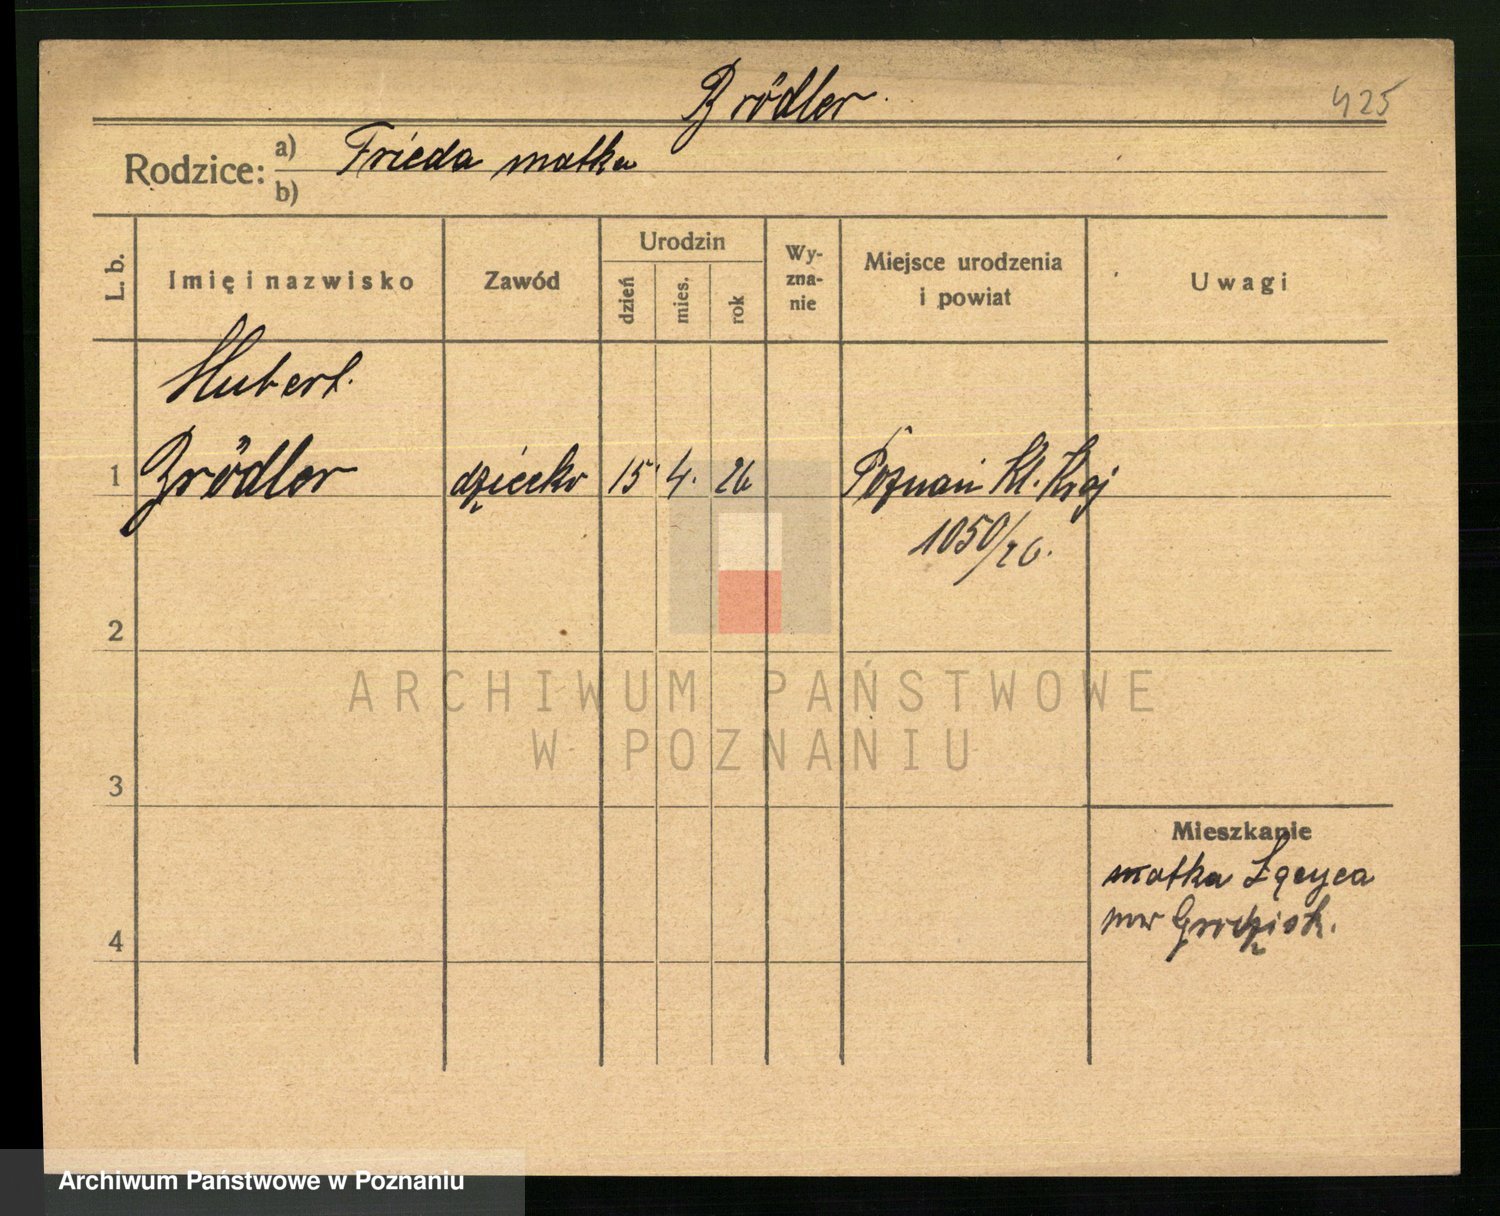 Brödler
425
Rodzice: a) Frieda matka
b)
L. b. Imię i nazwisko Zawód Urodzin dzień mies. rok Wyznanie Miejsce urodzenia i powiat Uwagi
Hubert.
1 Brödler dziecko 15 4. 26 Poznań Kl. Kraj
1050/26.
2
ARCHIWUM PAŃSTWOWE
W POZNANIU
3
Mieszkanie
matka Łęczyca
4
Grodzisk.
Archiwum Państwowe w Poznaniu